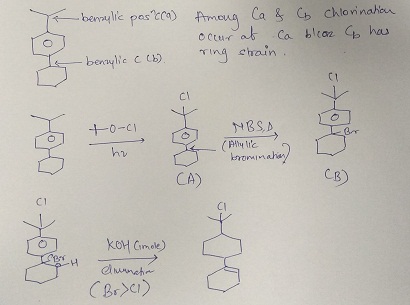 benzylic posⁿ C(a)
Among Ca & Cb chlorination
occur at Ca b/coz Cb has
ring strain.
benzylic C (b).
Cl
Cl
+O-Cl
hν
NBS, Δ
(Allylic
bromination)
Br
(A)
(B)
Cl
Cl
Br
H
KOH (1mole)
elimination
(Br>Cl)